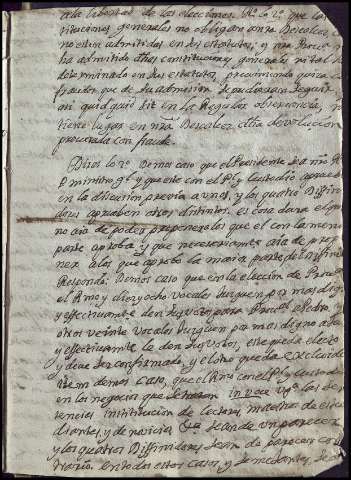 a la libertad de las elecciones. Lo 2º que las
tituciones generales no obligan a nra Descalcez,
no estan admitidas en sus estatutos, y nra Descal
ha admitido dhas constituciones generales ni tal ha
determinado en sus estatutos,
fraudes que de su admision se pudieran seguir
ni quid quid sit en la Regular observancia, no
tiene lugar en nra Descalcez dha devolucion
procurada con fraude.
Diras lo 2º. Demos caso que el Presidente sea nro R.
P. ministro gl y que este con el Pl y Custodio aprueben
en la discusion previa a unos, y los quatro Diffini
dores aprueben otros distintos. es cosa dura el que
no aia de poder proponer a los que el con la menor
parte aprobò, y que necesariamente aia de propo
ner a los que aprobò la maior parte de Diffinid
Respondo. Demos caso que en la eleccion de Proal
el Rmo y diez y ocho vocales surguen por mas digno
y efectivamente den sus votos para Proal a Pedro, y
otros veinte vocales surguen por mas digno a Juan
y efectivamente le den sus votos, este queda electo
y deve ser confirmado, y el otro queda excluido
Item demos caso, que el Rmo con el Pl y Custodio
en los negocios que se tratan in voce Vg. las sen
tencias institucion de Lectores, maestros de estu
diantes, y de novicios &a sean de un parecer
y los quatro Diffinidores sean de parecer con
trario. en todos estos casos, y semejantes, se